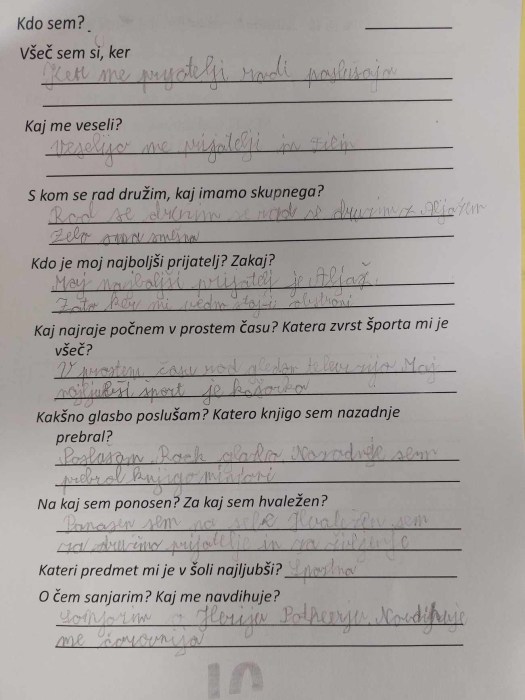 Kdo sem?
Všeč sem si, ker
Ker me prijatelji radi poslušajo
Kaj me veseli?
Veselijo me prijatelji in
S kom se rad družim, kaj imamo skupnega?
Rad se družim z Aljažem
Zelo sma smešna
Kdo je moj najboljši prijatelj? Zakaj?
Moj najboljši prijatelj je Aljaž.
Zato ker mi vedno stoji
Kaj najraje počnem v prostem času? Katera zvrst športa mi je
všeč?
V prostem času rad gledam Moj
najljubši šport je košarka
Kakšno glasbo poslušam? Katero knjigo sem nazadnje
prebral?
Poslušam Rock glasbo. Nazadnje sem
prebral knjigo
Na kaj sem ponosen? Za kaj sem hvaležen?
Ponosen sem na sebe Hvaležen sem
za družino prijatelje in za življenje
Kateri predmet mi je v šoli najljubši? Športna
O čem sanjarim? Kaj me navdihuje?
Sanjarim Navdihuje
me čarovnija